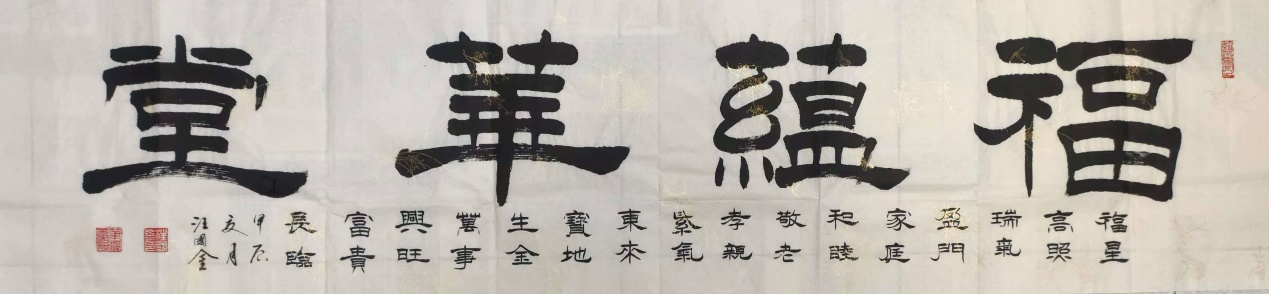 福蘊華堂
福星高照瑞氣盈門家庭和睦敬老孝親紫氣東來寶地生金萬事興旺富貴長臨
甲辰夏月汪國金